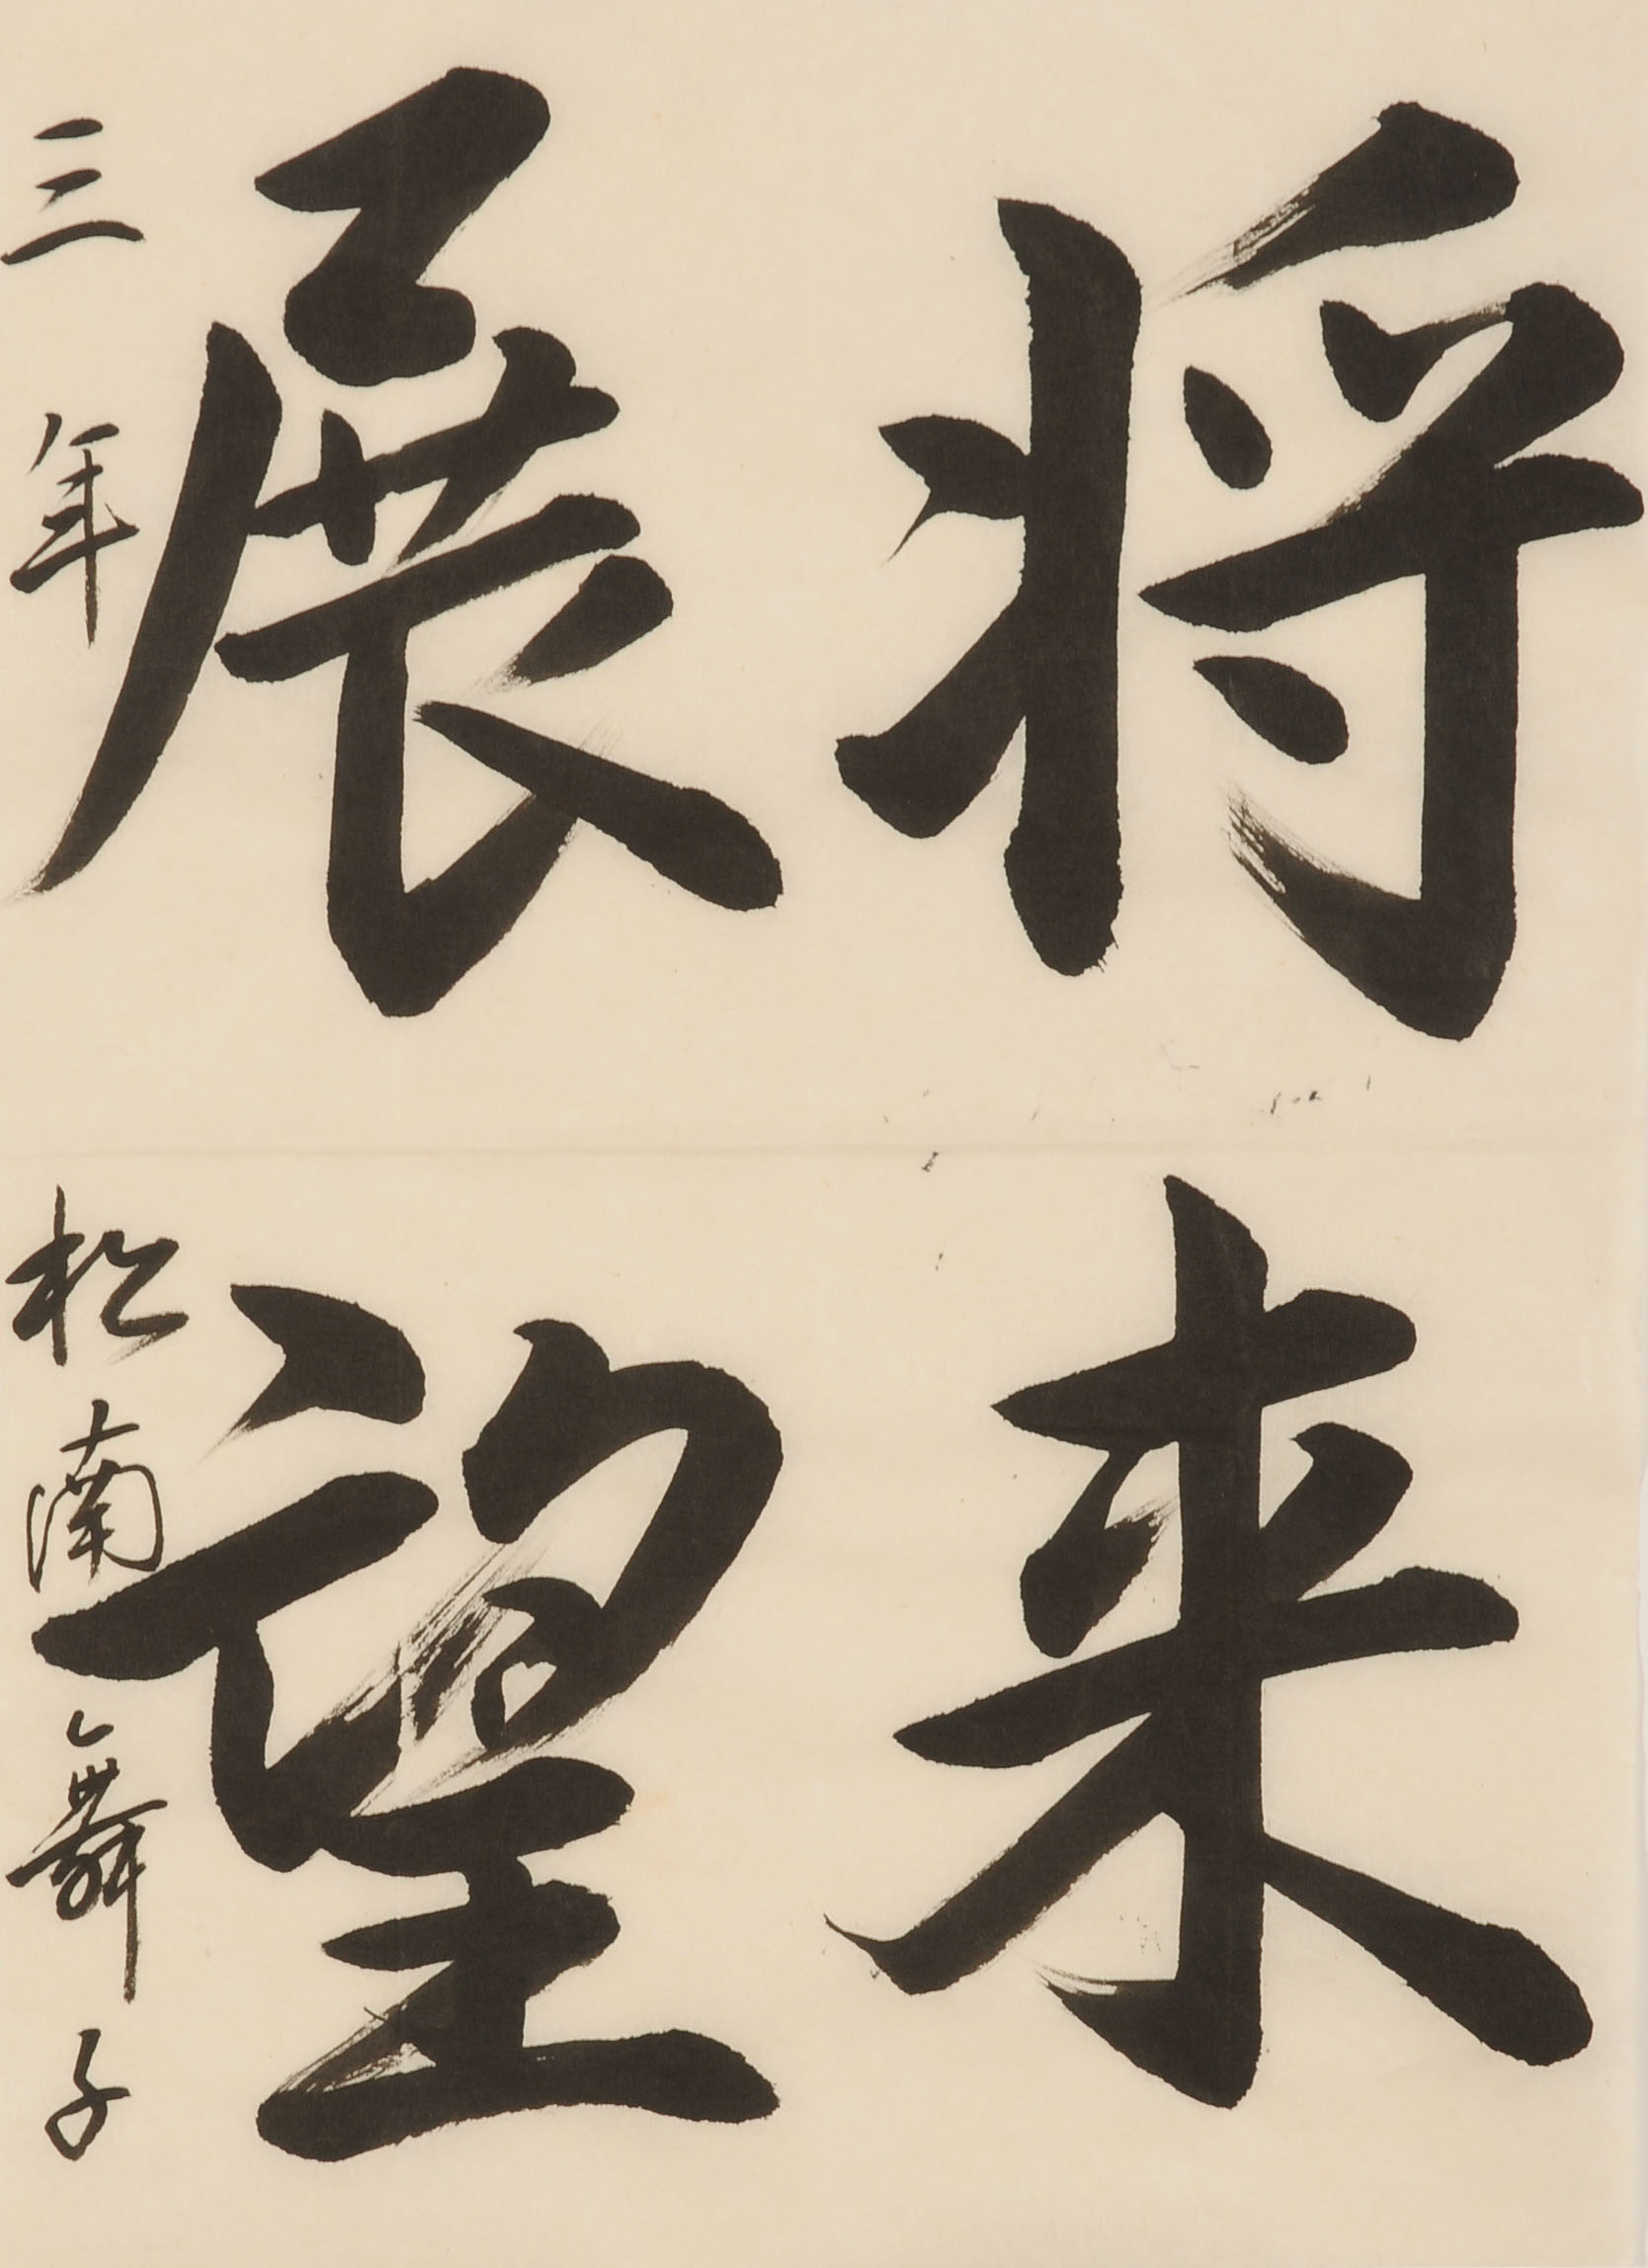 将来
展望
三年 松浦舞子